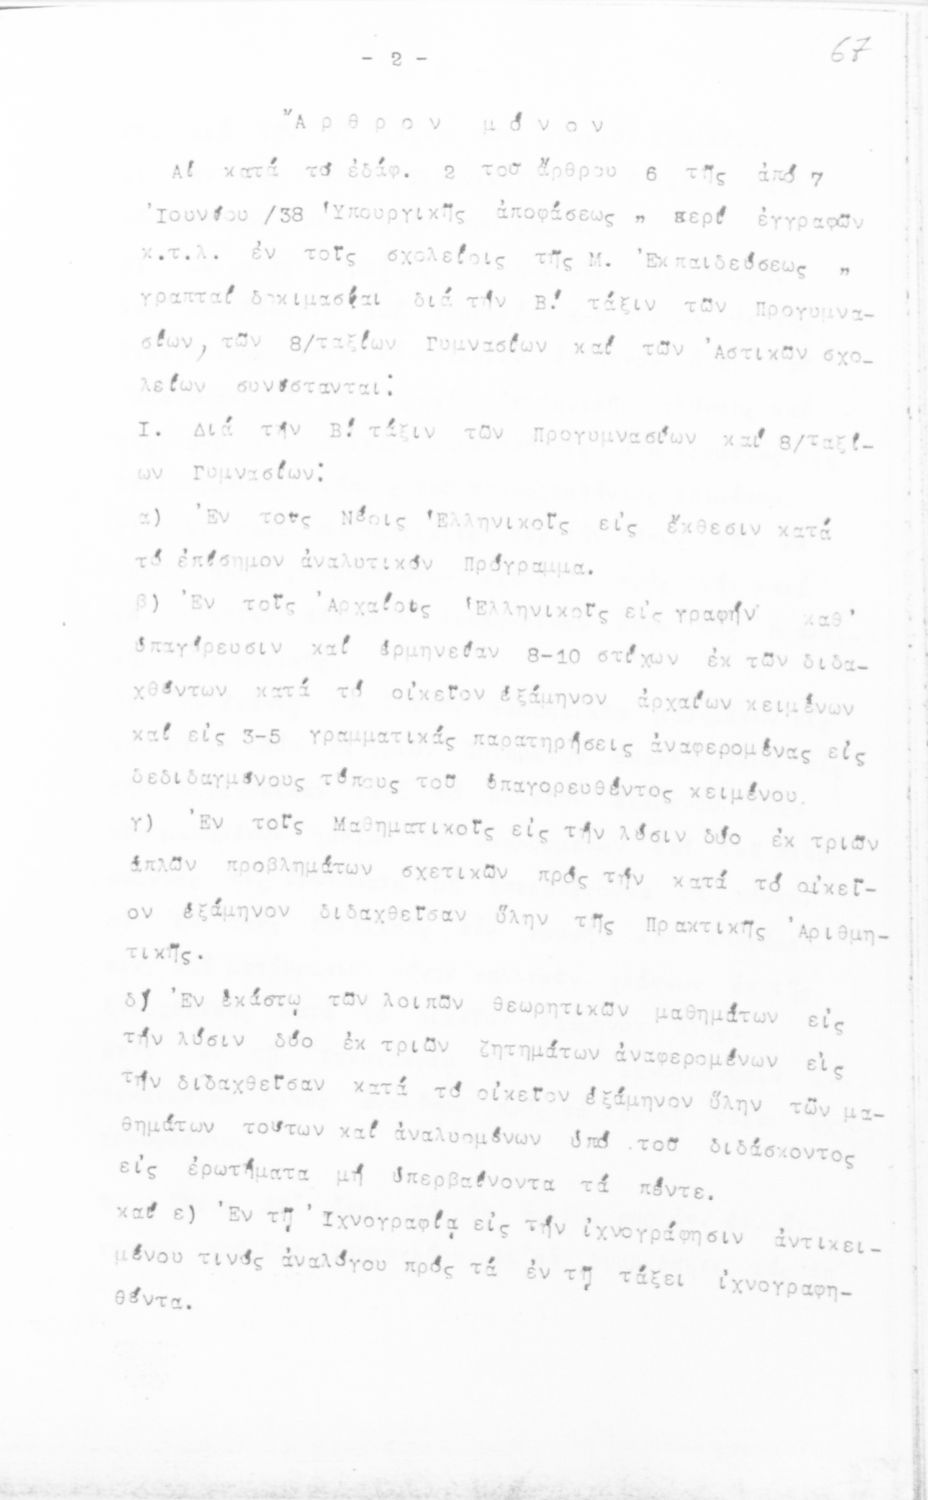 67
- 2 -
Ἄρθρον μόνον
Αἱ κατά τό ἐδάφ. 2 τοῦ ἄρθρου 6 τῆς ἀπό 7
Ἰουνίου /38 Ὑπουργικῆς ἀποφάσεως " περί ἐγγραφῶν
κ.τ.λ. ἐν τοῖς σχολείοις τῆς Μ. Ἐκπαιδεύσεως "
γραπταί δοκιμασίαι διά τήν Β! τάξιν τῶν Προγυμνα-
σίων, τῶν 8/ταξίων Γυμνασίων καί τῶν Ἀστικῶν σχο-
λείων συνίστανται:
Ι. Διά τήν Β! τάξιν τῶν Προγυμνασίων καί 8/ταξί-
ων Γυμνασίων:
α) Ἐν τοῖς Νέοις Ἑλληνικοῖς εἰς ἔκθεσιν κατά
τό ἐπίσημον ἀναλυτικόν Πρόγραμμα.
β) Ἐν τοῖς Ἀρχαίοις Ἑλληνικοῖς εἰς γραφήν καθ'
ὑπαγόρευσιν καί ἑρμηνείαν 8-10 στίχων ἐκ τῶν διδα-
χθέντων κατά τό οἰκεῖον ἑξάμηνον ἀρχαίων κειμένων
καί εἰς 3-5 γραμματικάς παρατηρήσεις ἀναφερομένας εἰς
δεδιδαγμένους τύπους τοῦ ὑπαγορευθέντος κειμένου.
γ) Ἐν τοῖς Μαθηματικοῖς εἰς τήν λύσιν δύο ἐκ τριῶν
ἁπλῶν προβλημάτων σχετικῶν πρός τήν κατά τό οἰκεῖ-
ον ἑξάμηνον διδαχθεῖσαν ὕλην τῆς Πρακτικῆς Ἀριθμη-
τικῆς.
δ) Ἐν ἑκάστῳ τῶν λοιπῶν θεωρητικῶν μαθημάτων εἰς
τήν λύσιν δύο ἐκ τριῶν ζητημάτων ἀναφερομένων εἰς
τήν διδαχθεῖσαν κατά τό οἰκεῖον ἑξάμηνον ὕλην τῶν μα-
θημάτων τούτων καί ἀναλυομένων ὑπό τοῦ διδάσκοντος
εἰς ἐρωτήματα μή ὑπερβαίνοντα τά πέντε.
καί ε) Ἐν τῇ Ἰχνογραφίᾳ εἰς τήν ἰχνογράφησιν ἀντικει-
μένου τινός ἀναλόγου πρός τά ἐν τῇ τάξει ἰχνογραφη-
θέντα.